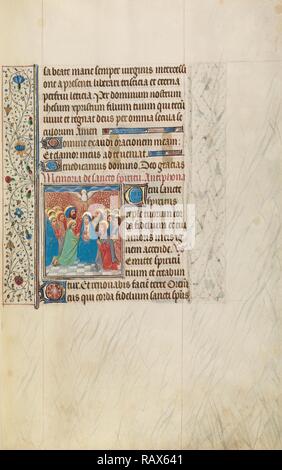 sa beate marie semper virginis intercessi
one a presenti liberari tristicia et eterna
perfrui leticia Per dominum nostrum
ihesum xpristum filium tuum qui tecū
uiuit et regnat deus per omnia secula se
culorum Amen
Domine exaudi orationem meam:
Et clamor meus ad te ueniat
Benedicamus domino Deo gracias
Memoria de sancto spiritu Anephona
Ueni sancte
spiritus
reple tuorum cor
da fidelium et tui
amoris in eis ig
nem accende
Emitte spiritū
tuum et creabun
tur Et renouabis faciem terre
us qui corda fidelium sancti spūs
alamy
Image ID: RAX641
www.alamy.com